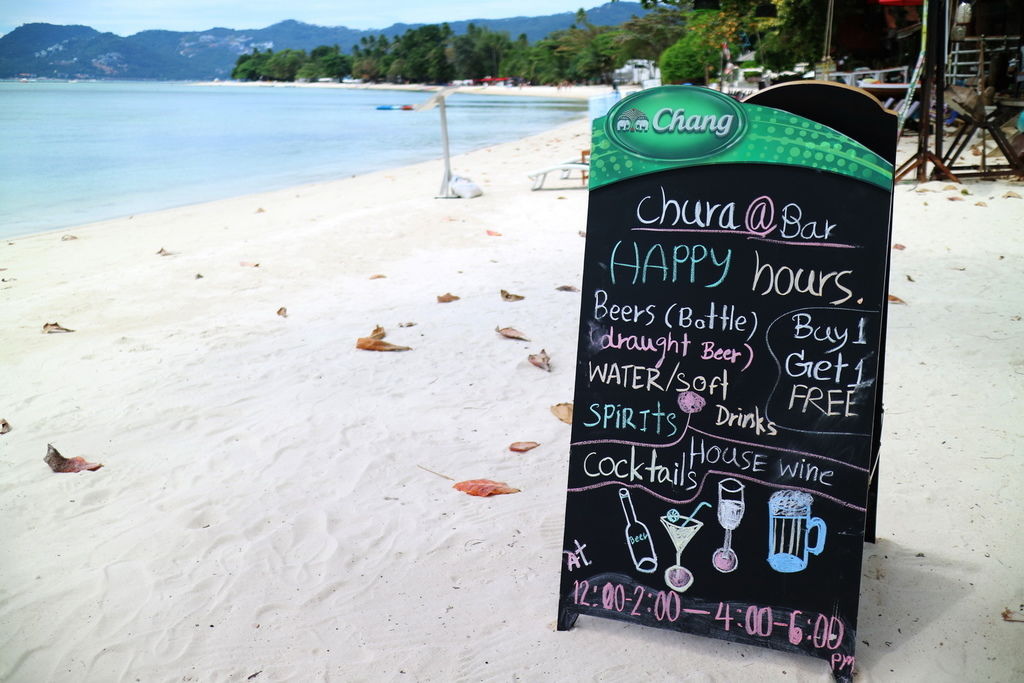 Chang
chura @ Bar
HAPPY hours.
Beers (Bottle)
(draught Beer)
Buy 1
Get 1
FREE
WATER/soft
Drinks
SPIRITS
Cocktails
HOUSE wine
Beer
At.
12:00-2:00 — 4:00-6:00
pm